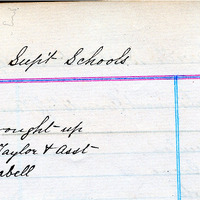 Sup't Schools
ought up
Taylor & Asst
abell